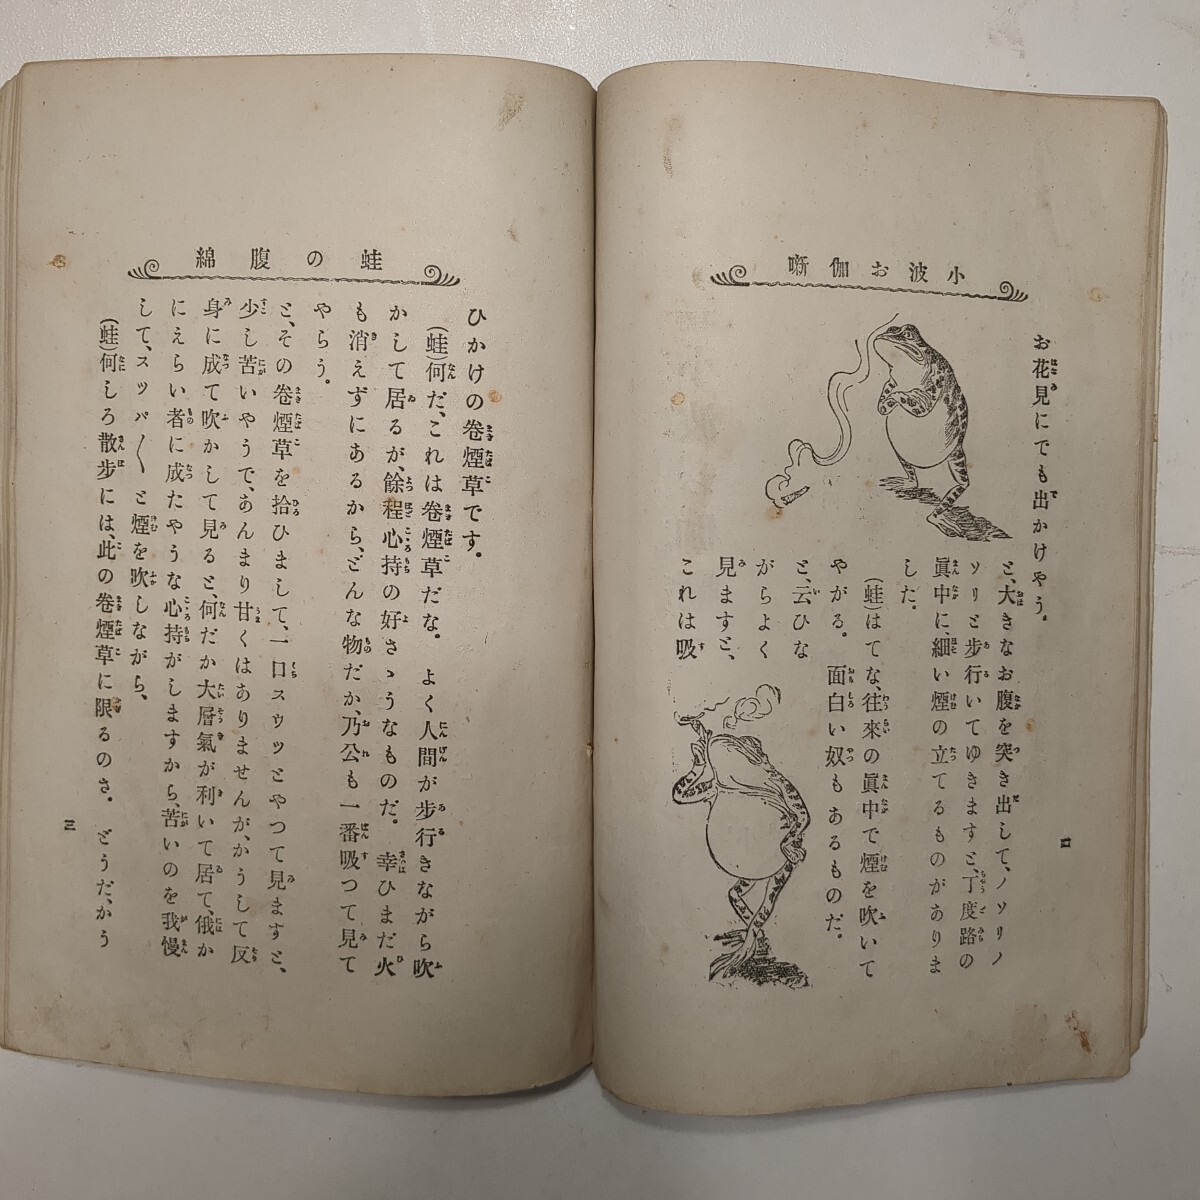 小波お伽噺
お花見にでも出かけやう。
と、大きなお腹を突き出して、ノソリノ
ソリと歩行いてゆきますと、丁度路の
眞中に、細い煙の立てるものがありま
した。
(蛙)はてな、往來の眞中で煙を吹いて
やがる。面白い奴もあるものだ。
と、云ひな
がらよく
見ますと、
これは吸
二
蛙の腹綿
ひかけの卷煙草です。
(蛙)何だ、これは卷煙草だな。よく人間が歩行きながら吹
かして居るが、餘程心持の好さゝうなものだ。幸ひまだ火
も消えずにあるから、どんな物だか、乃公も一番吸つて見て
やらう。
と、その卷煙草を拾ひまして、一口スウッとやつて見ますと、
少し苦いやうで、あんまり甘くはありませんが、かうして反
身に成て吹かして見ると、何だか大層氣が利いて居て、俄か
にえらい者に成たやうな心持がしますから、苦いのを我慢
して、スッパ〱と煙を吹しながら、
(蛙)何しろ散歩には、此の卷煙草に限るのさ。どうだ、かう
三